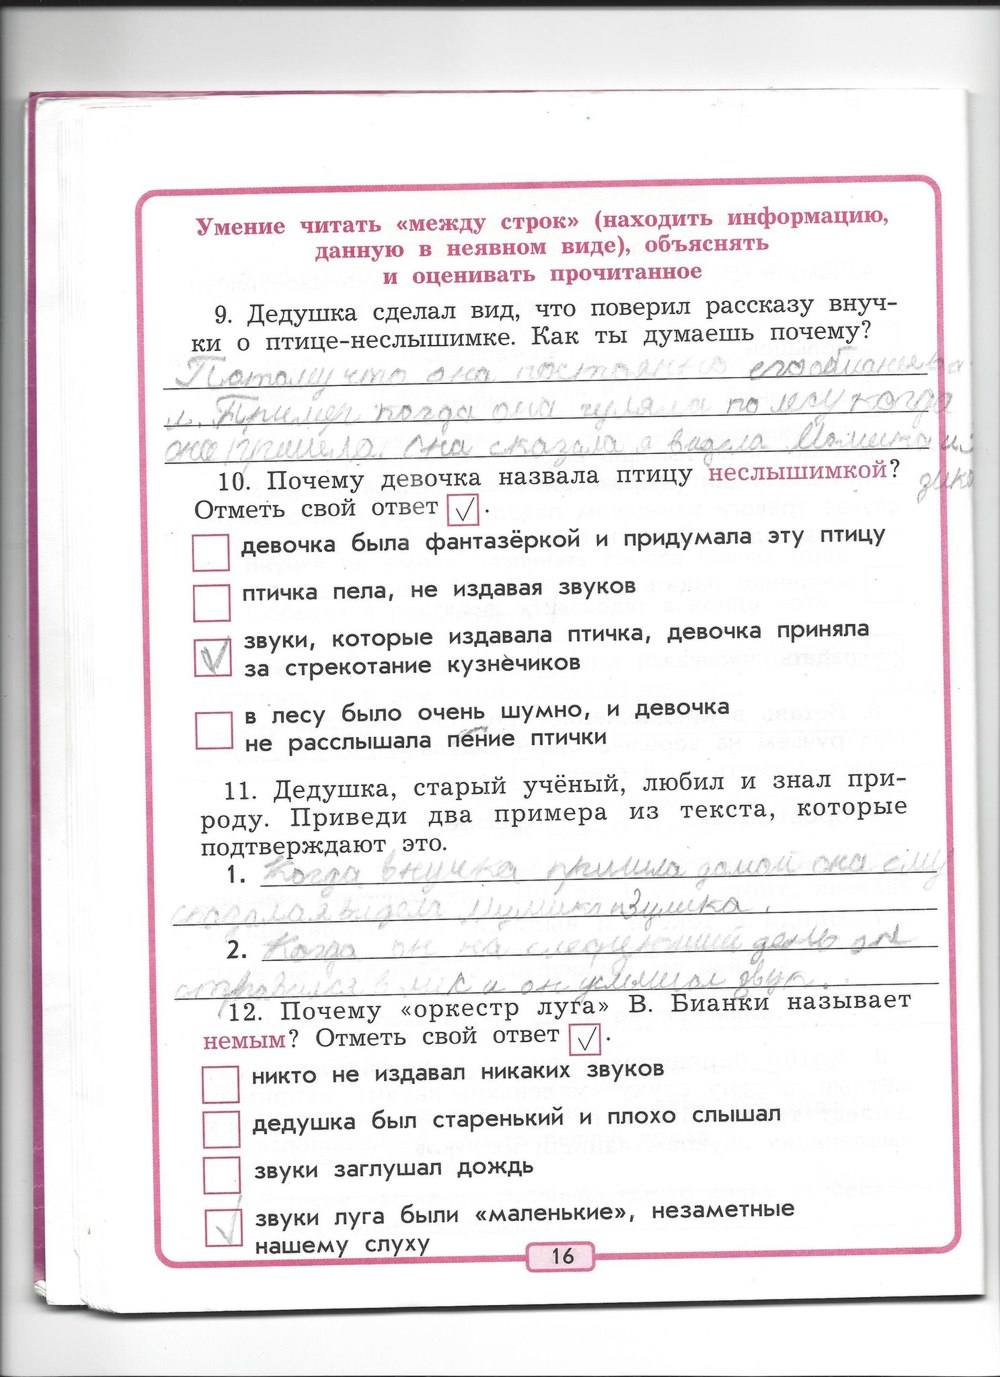 Умение читать «между строк» (находить информацию,
данную в неявном виде), объяснять
и оценивать прочитанное
9. Дедушка сделал вид, что поверил рассказу внуч-
ки о птице-неслышимке. Как ты думаешь почему?
Потому что она постоянно
Пример когда она гуляла по лесу когда
она сказала я видела
10. Почему девочка назвала птицу неслышимкой?
Отметь свой ответ ✓.
девочка была фантазёркой и придумала эту птицу
птичка пела, не издавая звуков
✓ звуки, которые издавала птичка, девочка приняла
за стрекотание кузнечиков
в лесу было очень шумно, и девочка
не расслышала пение птички
11. Дедушка, старый учёный, любил и знал при-
роду. Приведи два примера из текста, которые
подтверждают это.
1. Когда внучка пришла домой она ему
2. Когда он на день
в лес и он услышал звук.
12. Почему «оркестр луга» В. Бианки называет
немым? Отметь свой ответ ✓.
никто не издавал никаких звуков
дедушка был старенький и плохо слышал
звуки заглушал дождь
✓ звуки луга были «маленькие», незаметные
нашему слуху
16